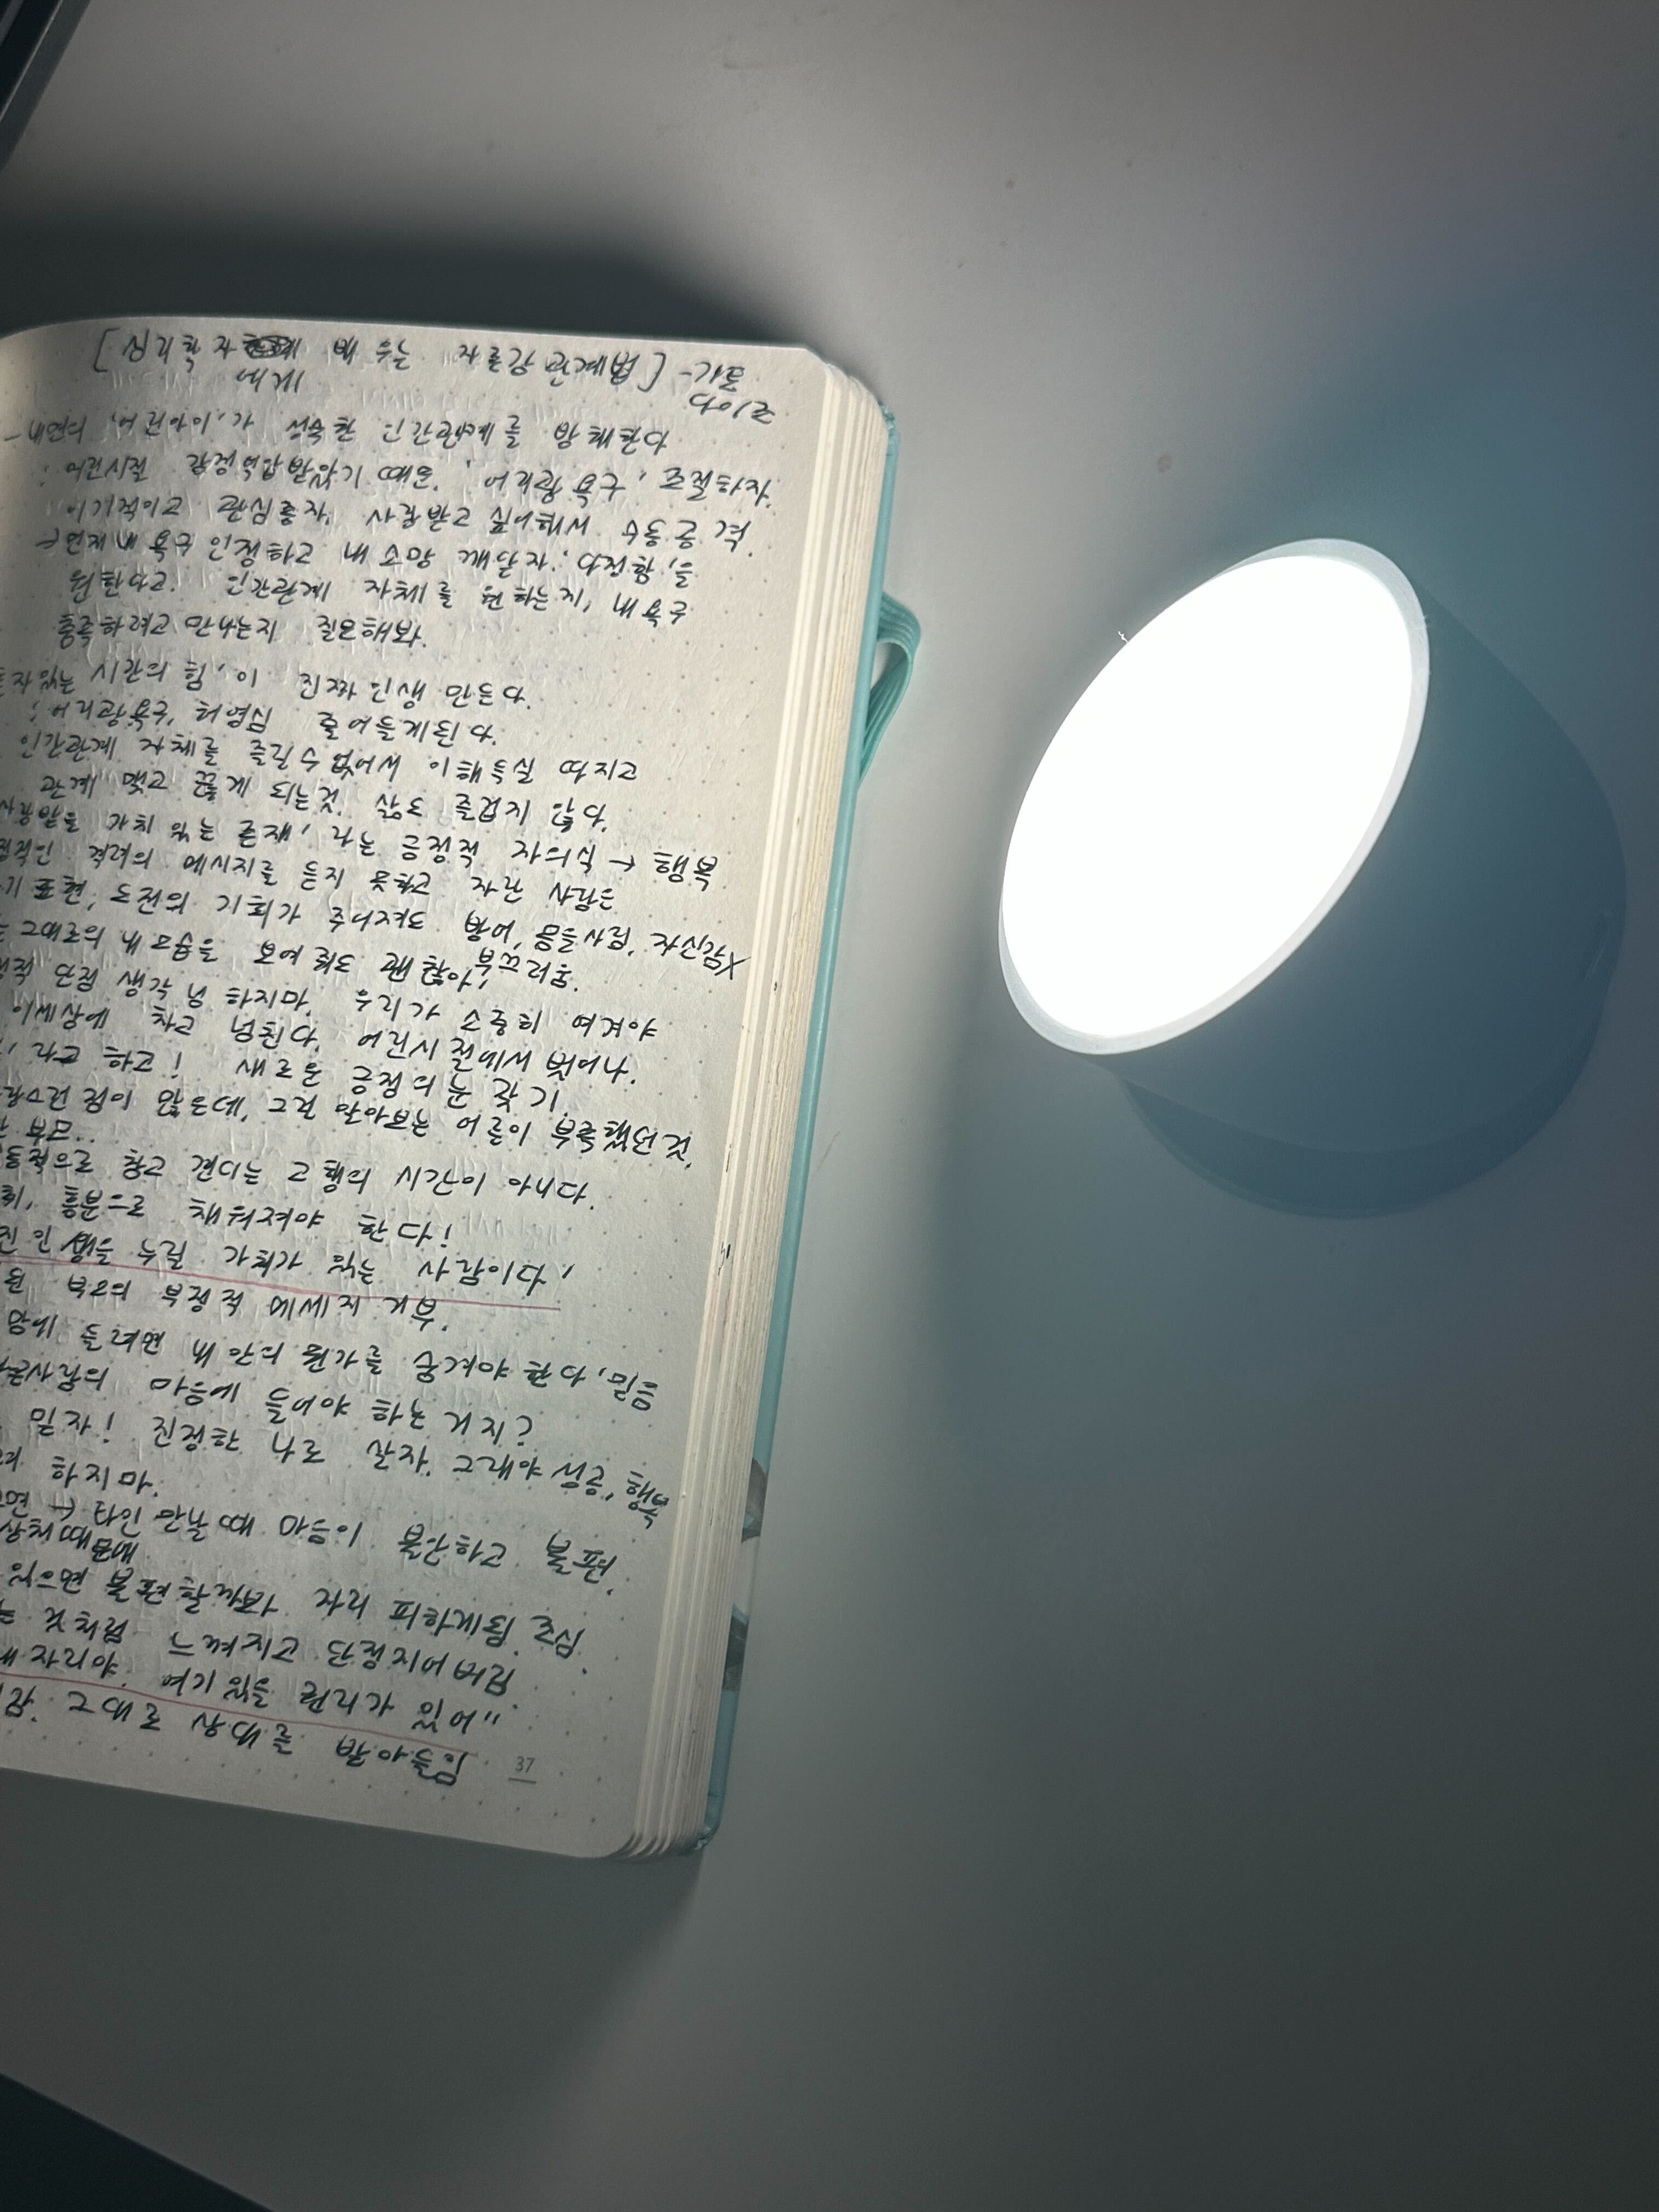 [심리학자에게 배우는 자존감 관계법] -가토 다이조
- 내면의 '어린아이'가 성숙한 인간관계를 방해한다
: 어린시절 감정억압받았기 때문. '어리광 욕구' 조절하자.
이기적이고 관심종자. 사랑받고 싶어해서 수동공격.
→ 먼저 내 욕구 인정하고 내 소망 깨닫자. '다정함'을
원한다고. 인간관계 자체를 원하는지, 내 욕구
충족하려고 만나는지 질문해봐.
자있는 시간의 힘'이 진짜 인생 만든다.
: 어리광욕구, 허영심 줄어들게된다.
인간관계 자체를 즐길수없어서 이해득실 따지고
관계 맺고 끊게 되는것. 삶도 즐겁지 않다.
사랑받을 가치 있는 존재'라는 긍정적 자의식 → 행복
격려의 메시지를 듣지 못하고 자란 사람은
표현, 도전의 기회가 주어져도 방어, 몸을사림. 자신감X
그대로의 내 모습을 보여줘도 괜찮아, 부끄러움.
단점 생각 넘 하지마. 우리가 소중히 여겨야
이세상에 차고 넘친다. 어린시절에서 벗어나.
라고 하고! 새로운 긍정의 눈 갖기.
점이 많은데, 그걸 알아보는 어른이 부족했던 것.
부모..
참고 견디는 고행의 시간이 아니다.
흥분으로 채워져야 한다!
인생을 누릴 가치가 있는 사람이다'
부모의 부정적 메세지 거부.
맘에 들려면 내 안의 뭔가를 숨겨야 한다' 믿음
사람의 마음에 들어야 하는 거지?
믿자! 진정한 나로 살자. 그래야 성공, 행복
하지마.
→ 타인 만날때 마음이 불안하고 불편.
상처때문에
있으면 불편할까봐 자리 피하게됨. 조심.
것처럼 느껴지고 단정지어버림.
내 자리야. 여기있을 권리가 있어"
그대로 상대를 받아들임.
37